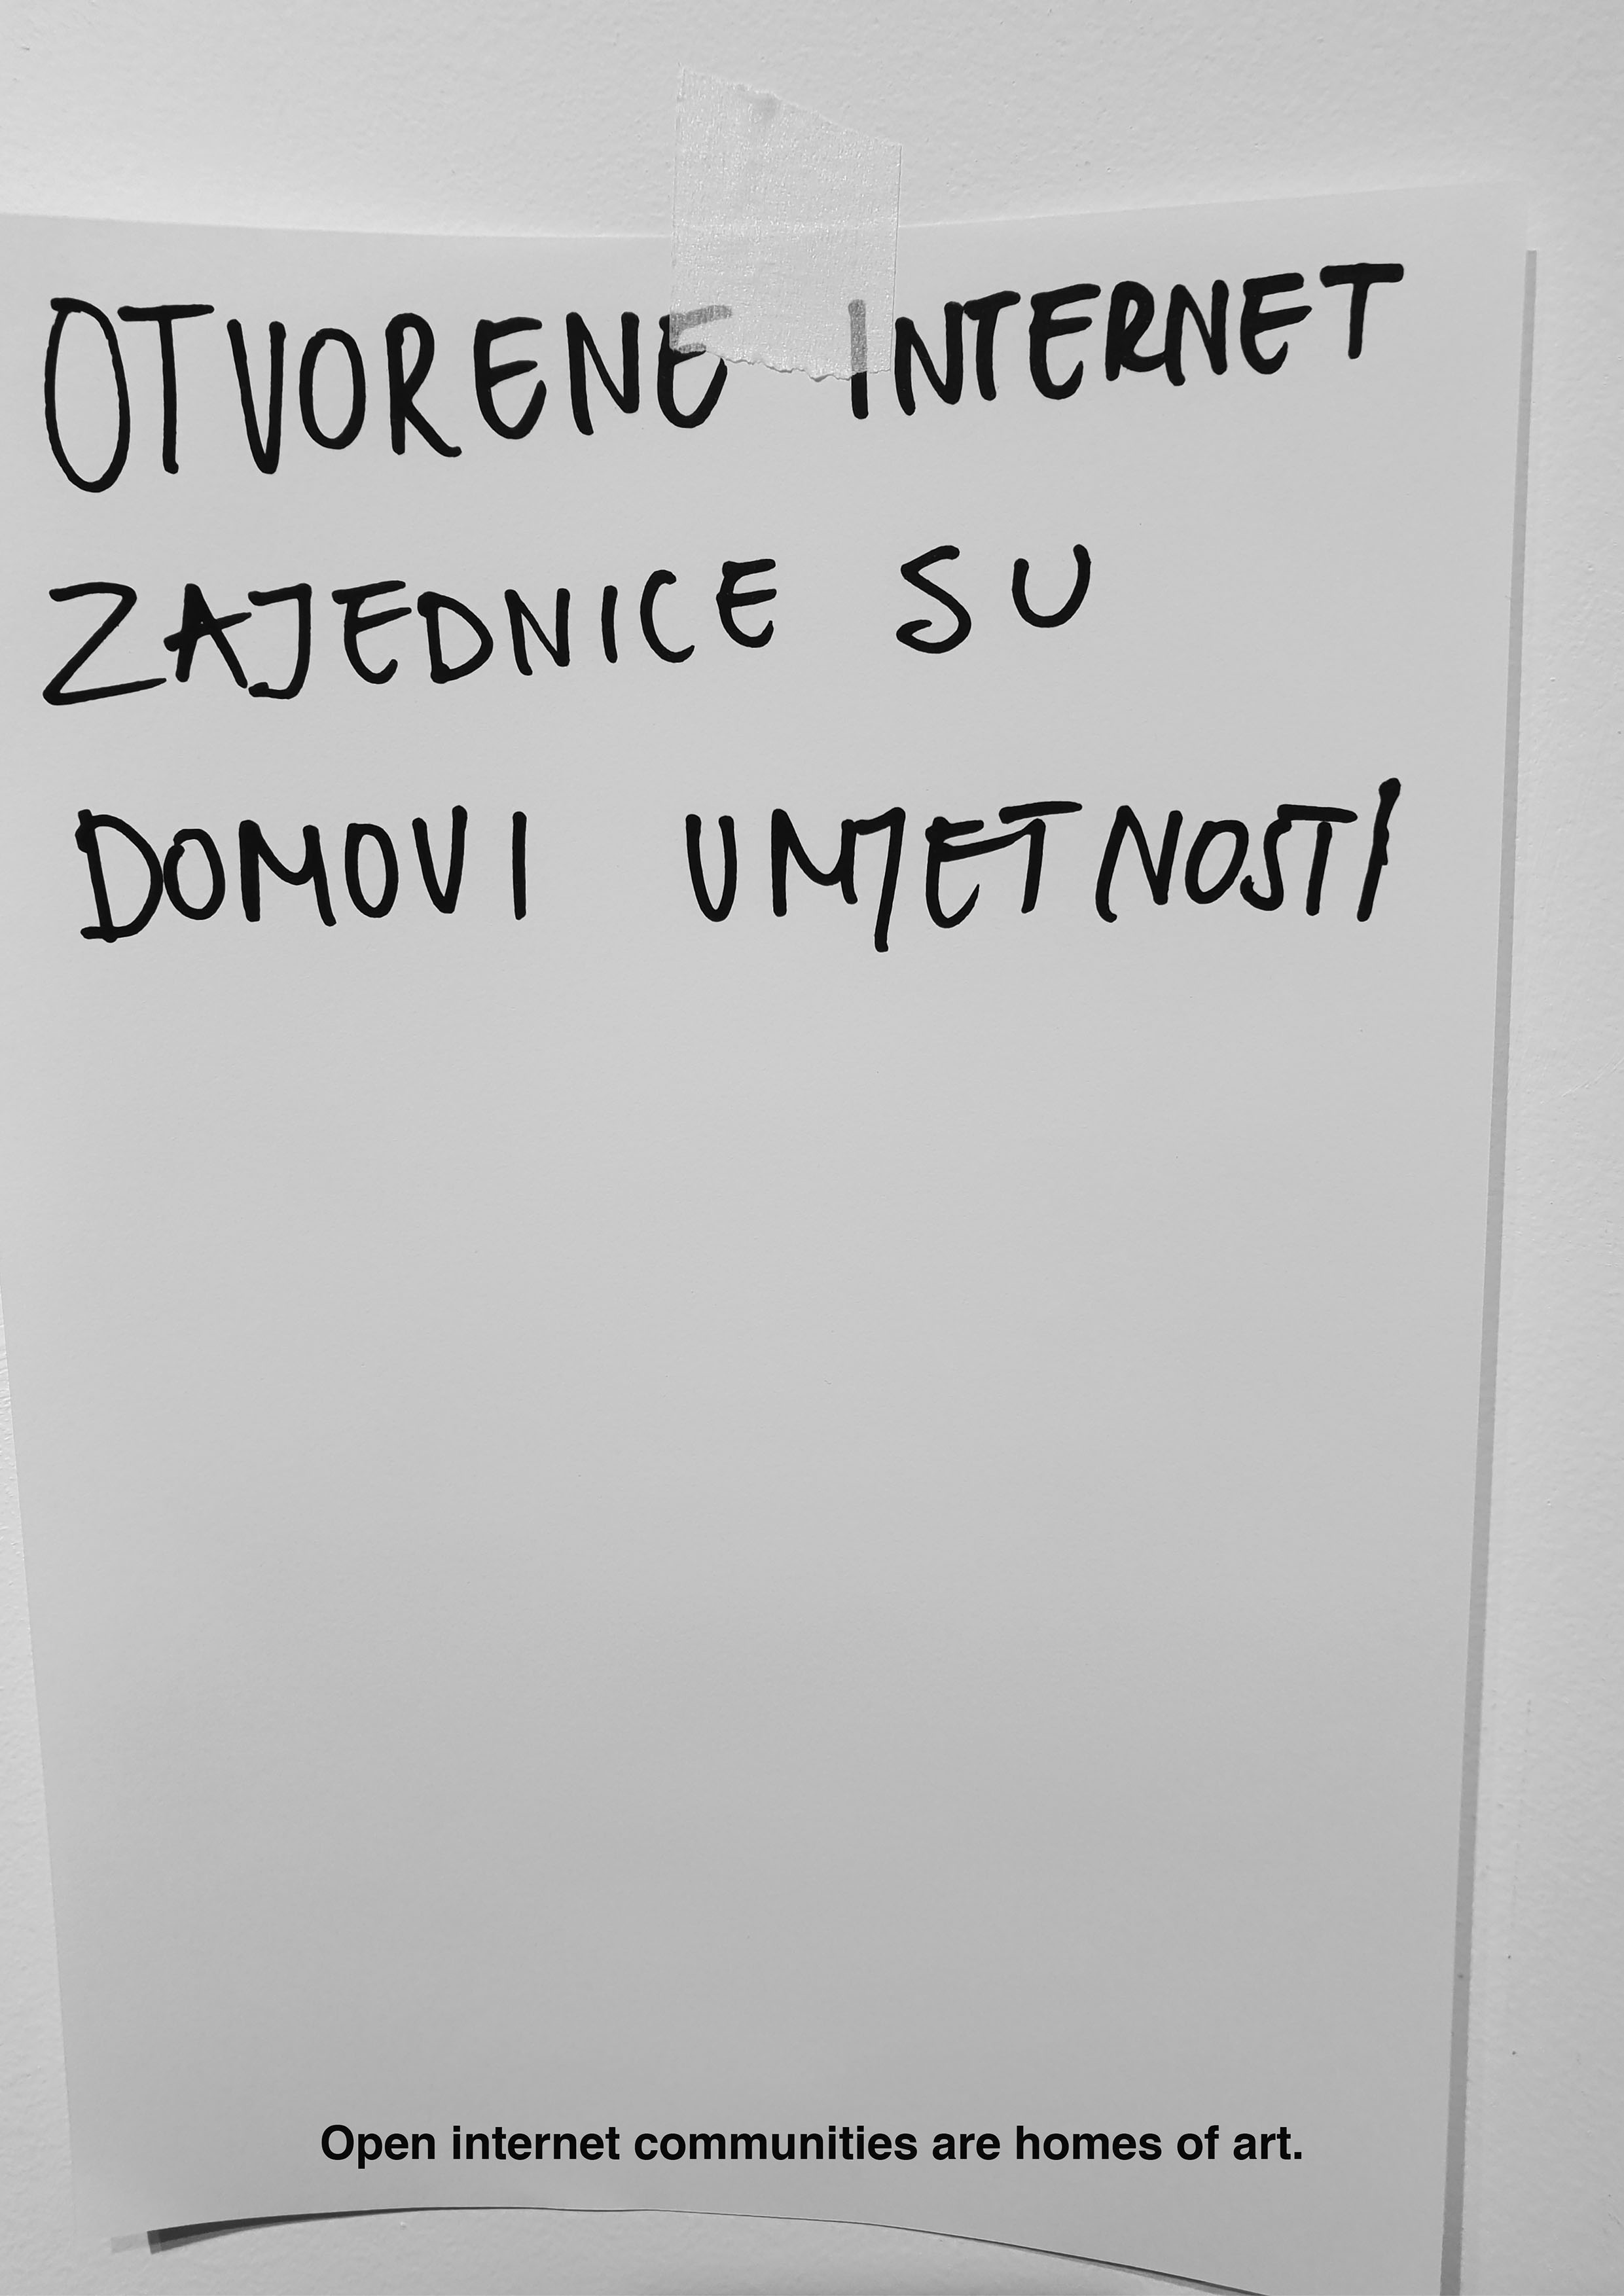 OTVORENE INTERNET
ZAJEDNICE SU
DOMOVI UMJETNOSTI
Open internet communities are homes of art.